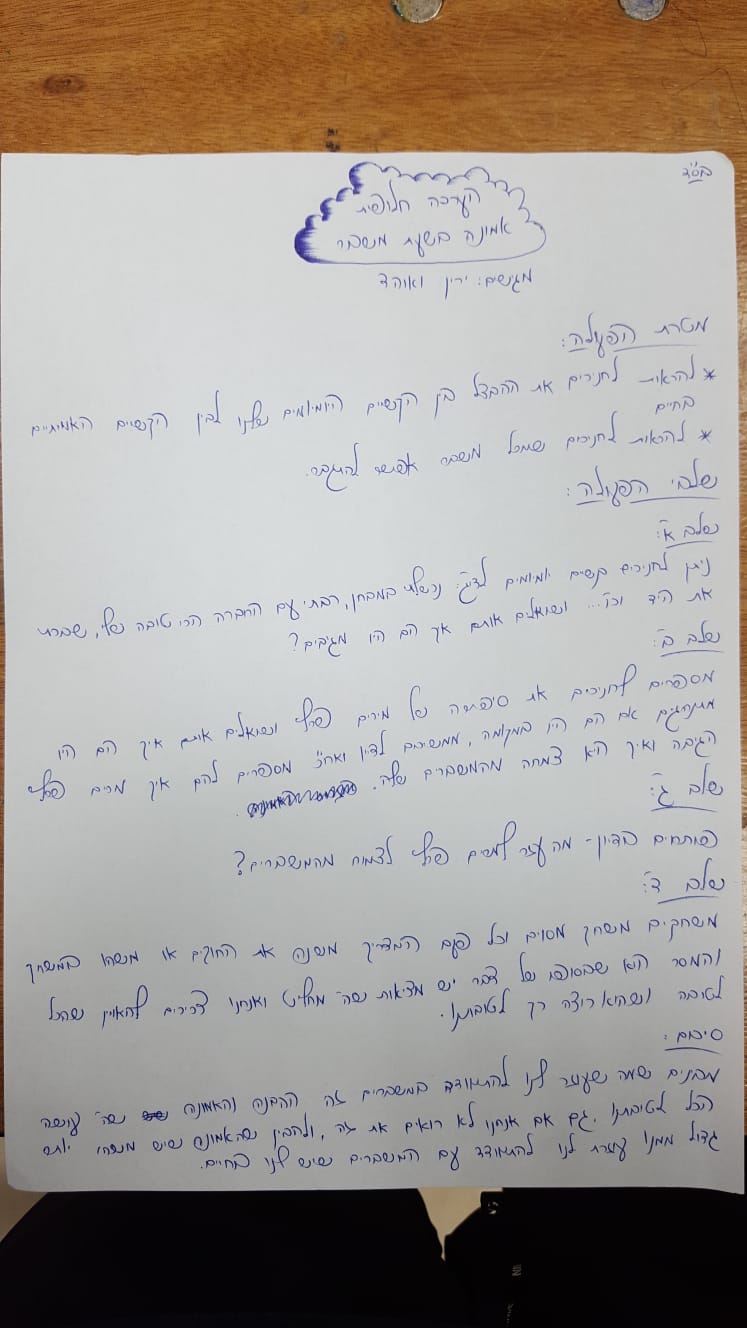 בס"ד
הערכה חלופית
אמונה בשעת משבר
מגישים: ירין ואוהד
מטרת הפעולה:
* להראות לחניכים את ההבדל בין הקשיים היומיומים שלנו לבין הקשיים האמיתיים
בחיים
* להראות לחניכים שמכל משבר אפשר להתגבר.
שלבי הפעולה:
שלב א':
ניתן לחניכים קשיים יומיומים לדוג': נכשלתי במבחן, רבתי עם החברה הכי טובה שלי, שברתי
את היד וכו'... ושואלים אותם איך הם היו מגיבים?
שלב ב':
מספרים לחניכים את סיפורה של מירים פרץ ושואלים אותם איך הם היו
מתנהגים אם הם היו במקומה, ממשיכים לדיון ואח"כ מספרים להם איך מרים פרץ
הגיבה ואיך היא צמחה מהמשברים שלה.
שלב ג':
פותחים בדיון - מה עזר למרים פרץ לצמוח מהמשברים?
שלב ד':
משחקים משחק מסוים וכל פעם המדריך משנה את החוקים או משהו במשחק
והמסר הוא שבסופו של דבר יש מציאות שה' מחליט ואנחנו צריכים להאמין שהכל
לטובה ושהוא רוצה רק לטובתנו.
סיכום:
מבינים שמה שעוזר לנו להתמודד במשברים זה ההבנה והאמונה שה' עושה
הכל לטובתנו. גם אם אנחנו לא רואים את זה, ולהבין שהאמונה שיש משהו יותר
גדול ממנו עוזרת לנו להתמודד עם המשברים שיש לנו בחיים.